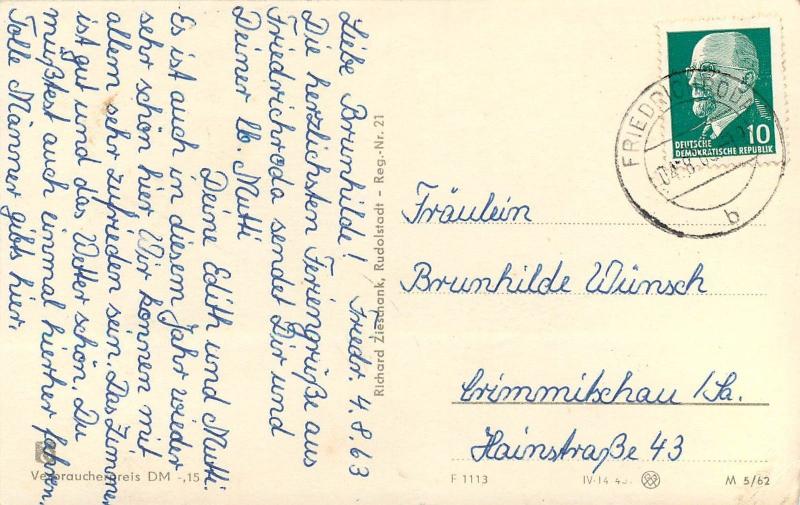 Friedr. 4.8.63
Liebe Brunhilde!
Die herzlichsten Feriengrüße aus
Friedrichroda sendet Dir und
Deiner lb. Mutti
Deine Edith und Mutti.
Es ist auch in diesem Jahr wieder
sehr schön hier. Wir können mit
allem sehr zufrieden sein. Das Zimmer
ist gut und das Wetter schön. Du
müßtest auch einmal hierher fahren.
Tolle Männer gibts hier.
Verbraucherpreis DM -,15
Richard Zieschank, Rudolstadt - Reg.-Nr. 21
10
DEUTSCHE
DEMOKRATISCHE REPUBLIK
04.8.63
b
Fräulein
Brunhilde Wünsch
Crimmitschau i/Sa.
Hainstraße 43
F 1113
IV-14-45
M 5/62